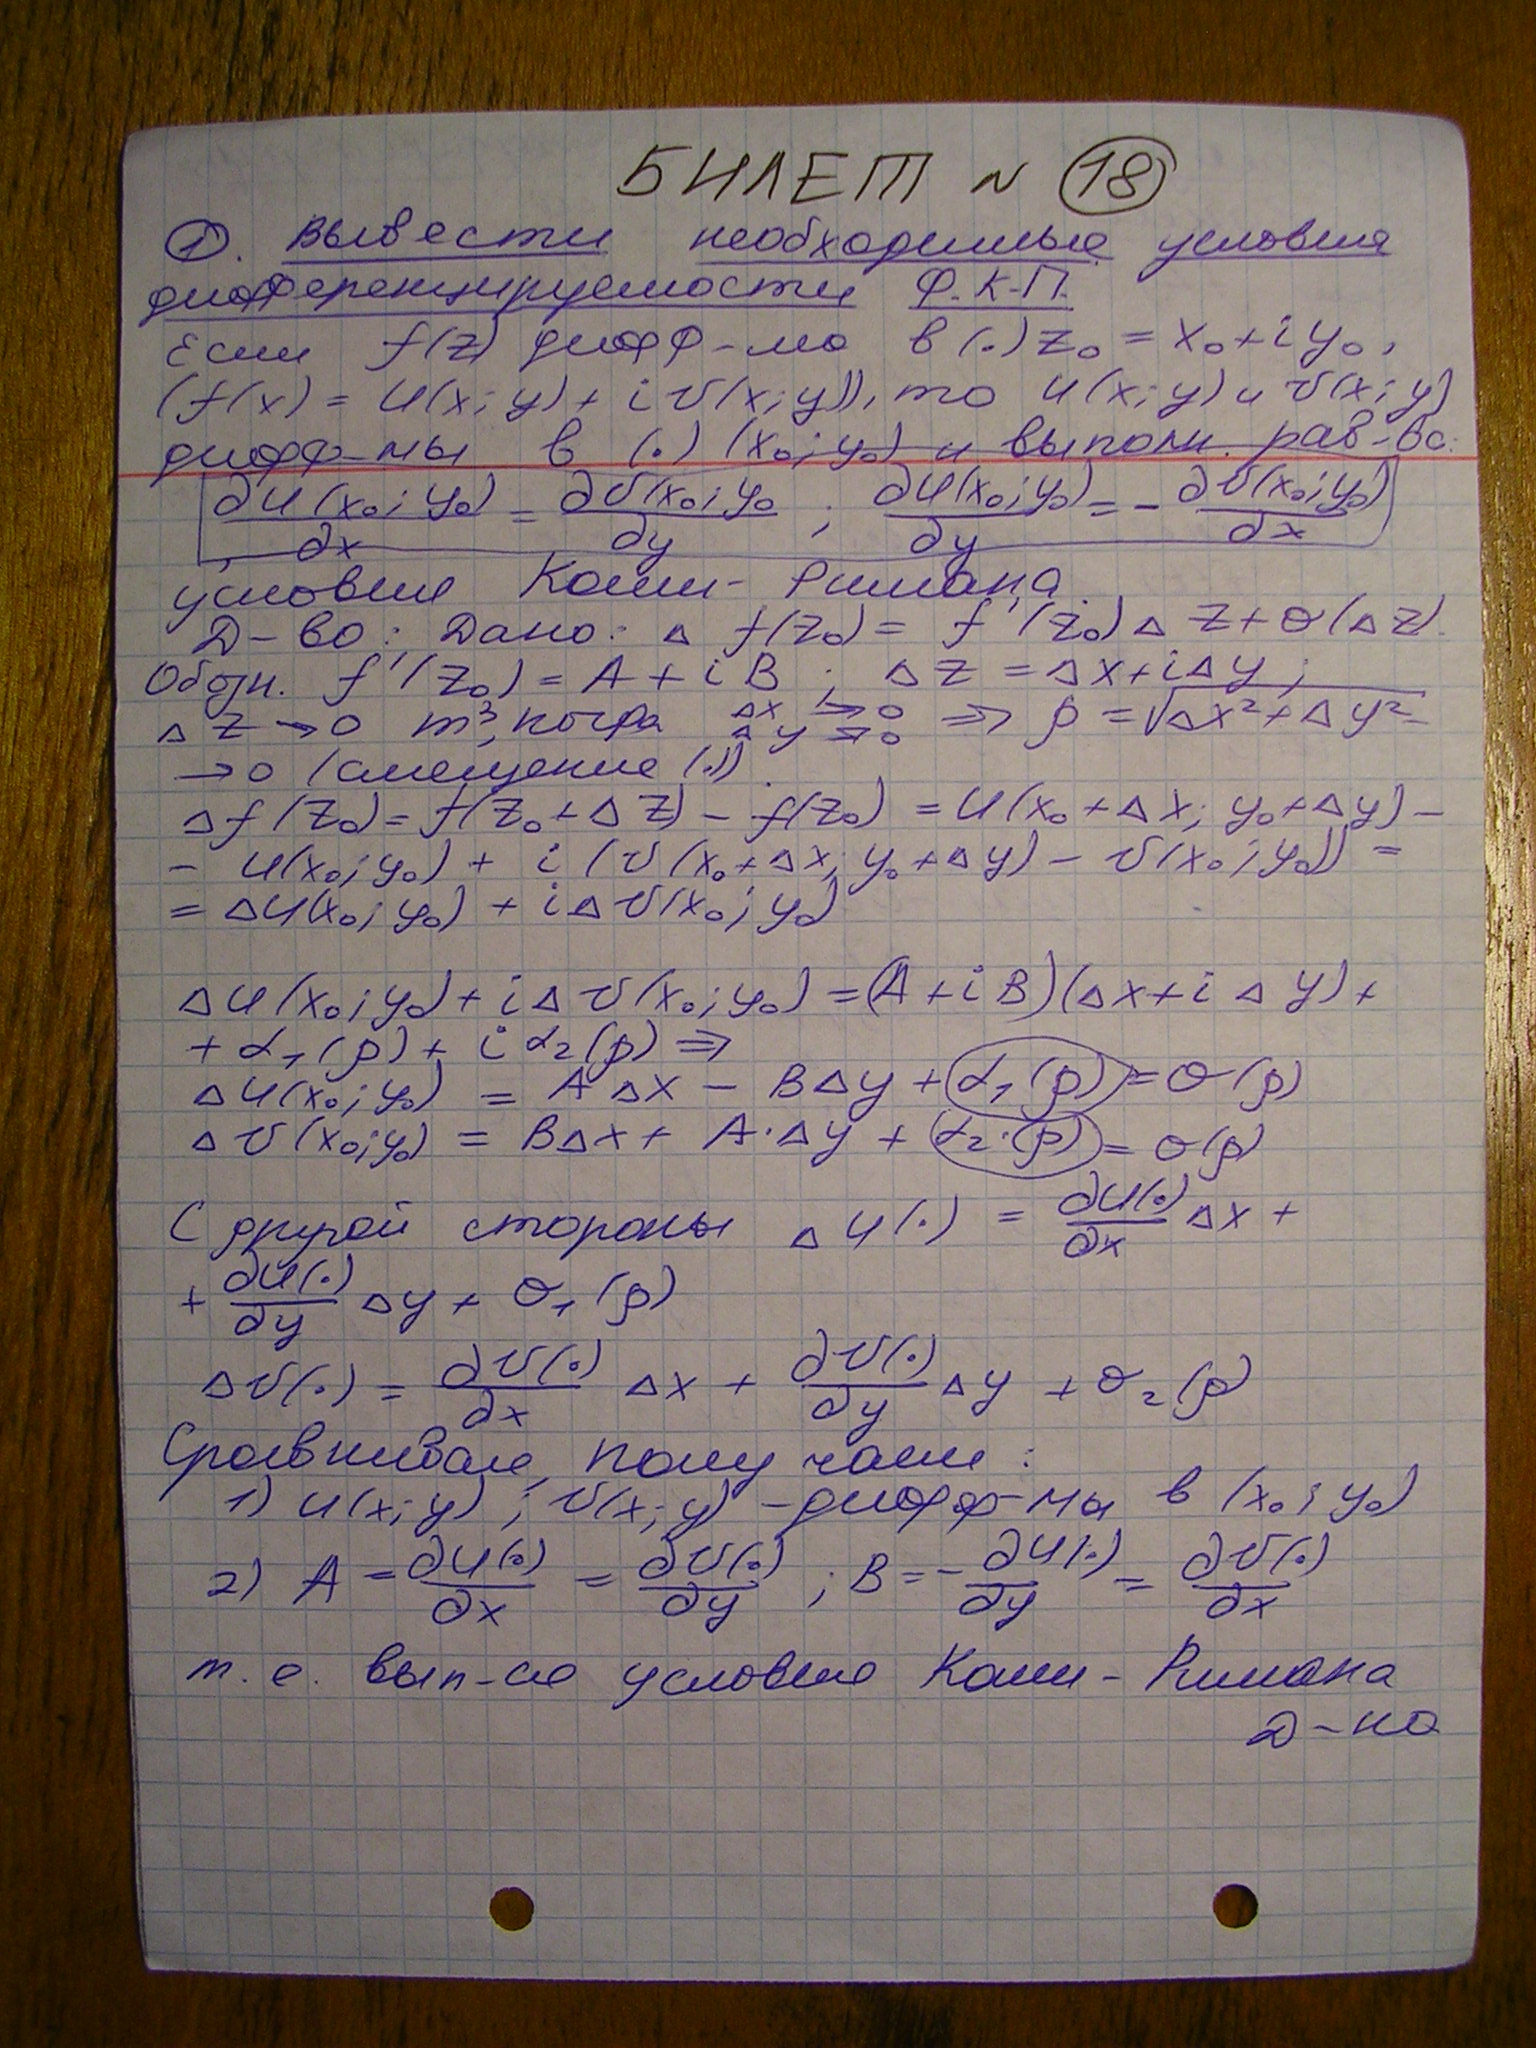 БИЛЕТ N 18
1. Вывести необходимые условия
дифференцируемости Ф.К.П.
Если f(z) дифф-ма в (.) z₀ = x₀ + iy₀,
(f(x) = U(x; y) + i V(x; y)), то U(x; y) и V(x; y)
дифф-мы в (.) (x₀; y₀) и выполн. рав-ва:
∂U(x₀; y₀)/∂x = ∂V(x₀; y₀/∂y ; ∂U(x₀; y₀)/∂y = - ∂V(x₀; y₀)/∂x
условие Коши - Римана.
Д-во: Дано: Δ f(z₀) = f'(z₀) Δ z + O(Δz).
Обозн. f'(z₀) = A + i B ; Δz = Δx + iΔy ;
Δ z → 0 т³, когда Δx → 0 Δy → 0 ⇒ ρ = √Δx² + Δy²
→ 0 (смещение (.))
Δf(z₀) = f(z₀ + Δz) - f(z₀) = U(x₀ + Δx; y₀ + Δy) -
- U(x₀; y₀) + i (V(x₀ + Δx; y₀ + Δy) - V(x₀; y₀)) =
= ΔU(x₀; y₀) + iΔV(x₀; y₀)
ΔU(x₀; y₀) + iΔV(x₀; y₀) = (A + i B)(Δx + i Δy) +
+ α₁(ρ) + i α₂(ρ) ⇒
ΔU(x₀; y₀) = AΔx - BΔy + α₁(ρ) = O(ρ)
ΔV(x₀; y₀) = BΔx + A·Δy + α₂·(ρ) = O(ρ)
С другой стороны ΔU(.) = ∂U(.)/∂x Δx +
+ ∂U(.)/∂y Δy + O₁(ρ)
ΔV(.) = ∂V(.)/∂x Δx + ∂V(.)/∂y Δy + O₂(ρ)
Сравнивая, получаем:
1) U(x; y) ; V(x; y) - дифф-мы в (x₀; y₀)
2) A = ∂U(.)/∂x = ∂V(.)/∂y ; B = - ∂U(.)/∂y = ∂V(.)/∂x
т. е. вып-ся условие Коши - Римана
Д-но